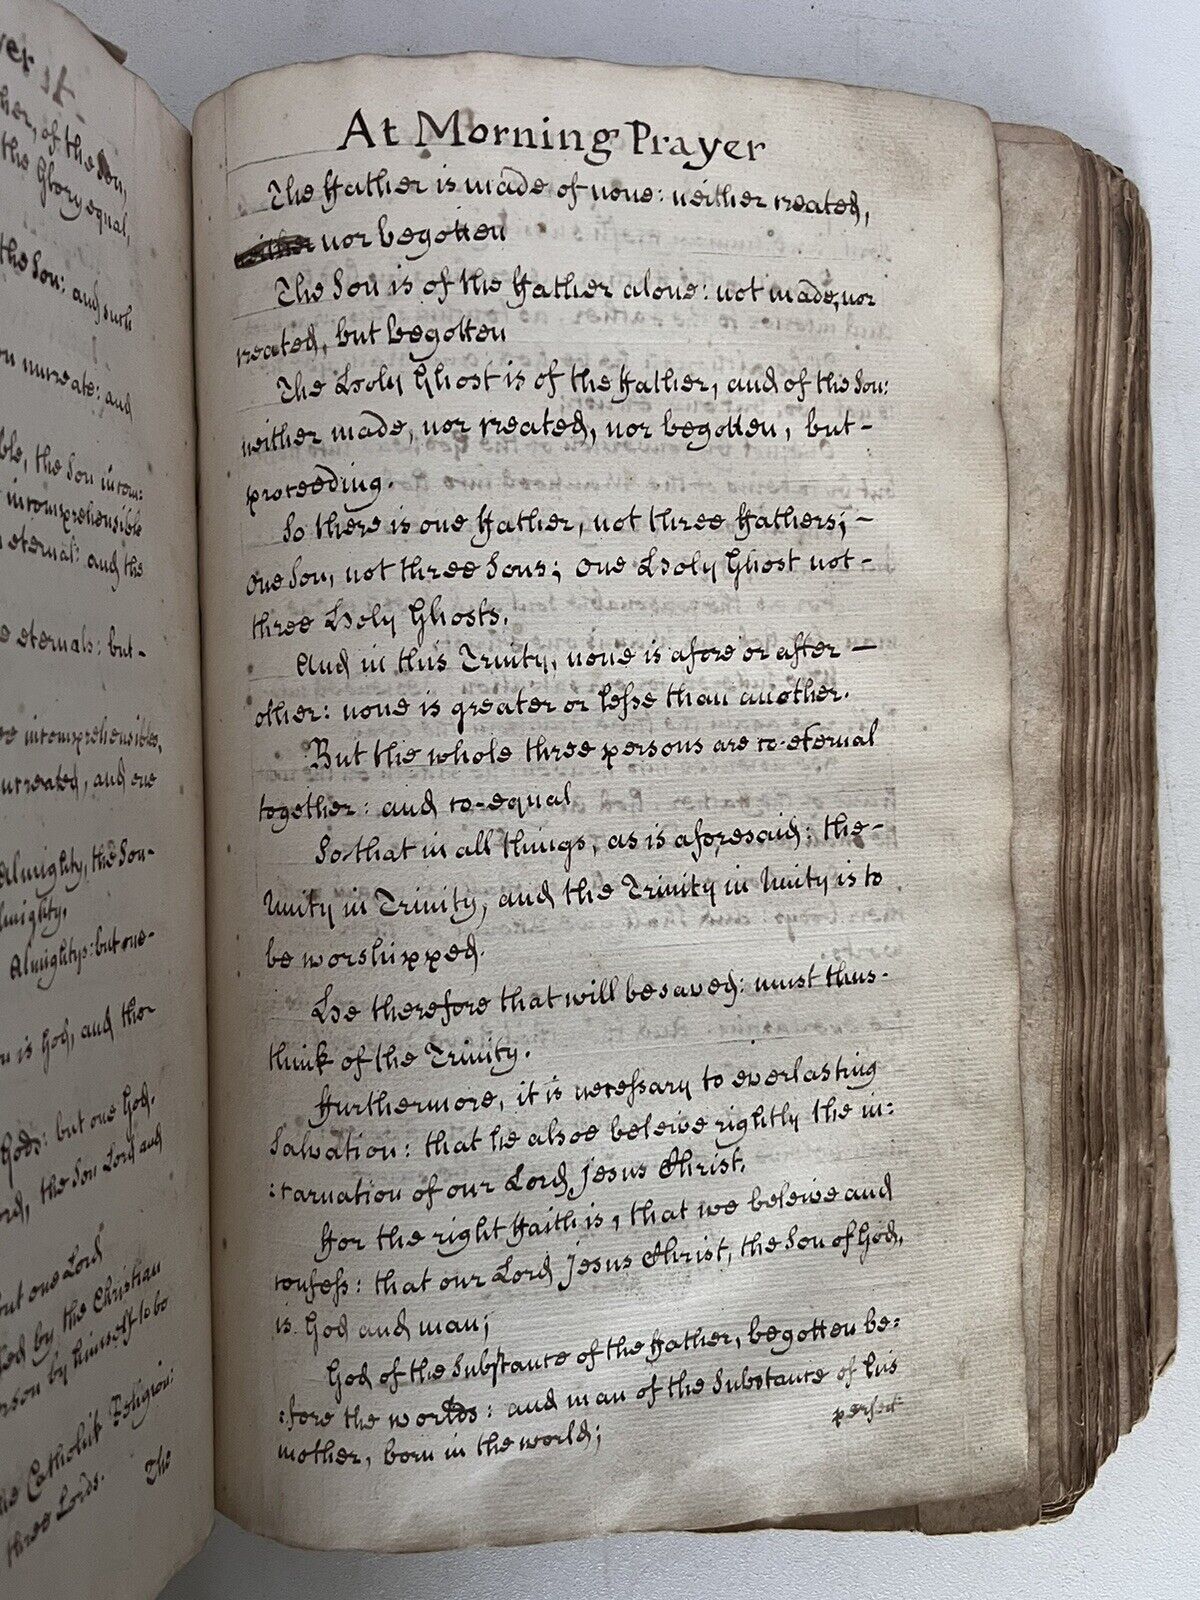 yer
her, of the Son,
the Glory equal,
the Son: and such
uncreate: and
ble, the Son incom:
incomprehensible
eternal: and the
eternals: but-
incomprehensibles,
uncreated, and one
Almighty, the Son-
lmighty.
Almightys: but one-
is God, and the
Gods: but one God.
ord, the Son Lord and
but one Lord
by the Christian
erson by himself to be
Catholick Religion:
three Lords. The
At Morning Prayer
The Father is made of none: neither created,
neither nor begotten
The Son is of the Father alone: not made, nor
created, but begotten
The Holy Ghost is of the Father, and of the Son:
neither made, nor created, nor begotten, but-
proceeding.
So there is one Father, not three Fathers; -
one Son, not three Sons; one Holy Ghost not-
three Holy Ghosts.
And in this Trinity, none is afore or after —
other: none is greater or lesse than another.
But the whole three persons are co-eternal
together: and co-equal
So that in all things, as is aforesaid: the-
Unity in Trinity, and the Trinity in Unity is to
be worshipped.
He therefore that will be saved: must thus-
think of the Trinity.
Furthermore, it is necessary to everlasting
Salvation: that he alsoe beleive rightly the in:
:carnation of our Lord Jesus Christ.
For the right Faith is, that we beleive and
confess: that our Lord Jesus Christ, the Son of God,
is God and man;
God of the Substance of the Father, begotten be:
:fore the worlds: and man of the Substance of his
mother, born in the world;
perfect